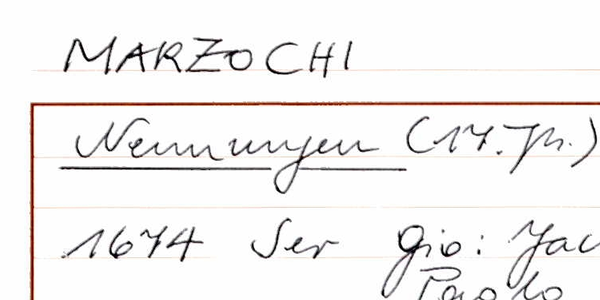 MARZOCHI
Nennungen (17. Jh.)
1674 Ser Gio: Jac
Paolo